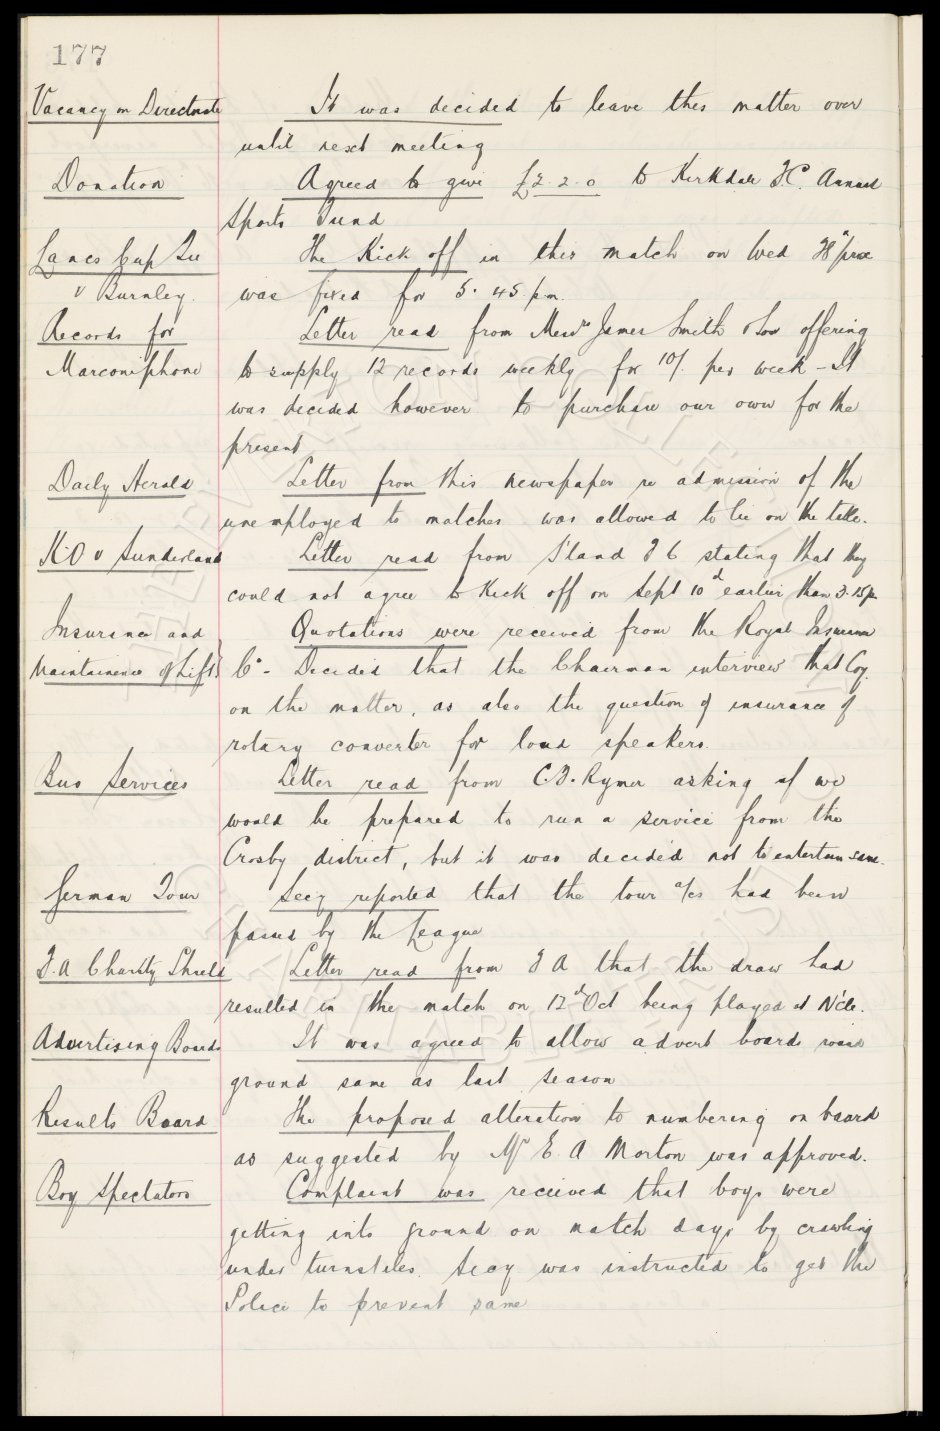 177
Vacancy on Directorate
It was decided to leave this matter over
until next meeting
Donation
Agreed to give £2.2.0 to Kirkdale F.C. Annual
Sports Fund
Lancs Cup
v Burnley.
The Kick off in this match on Wed prox
was fixed for 5.45 p.m.
Records for
Marconiphone
Letter read from Messrs James Smith & Son offering
to supply 12 records weekly for 10/. per week - It
was decided however to purchase our own for the
present
Daily Herald
Letter from this newspaper re admission of the
unemployed to matches was allowed to lie on the table.
K.O v Sunderland
Letter read from S'land F C stating that they
could not agree to Kick off on Sept 10th earlier than 3.15 p.m
Insurance and
Maintainence of Lift
Quotations were received from the Royal Insurance
Co - Decided that the Chairman interview that Coy.
on the matter, as also the question of insurance of
rotary converter for loud speakers.
Bus Services
Letter read from C.F. Rymer asking if we
would be prepared to run a service from the
Crosby district, but it was decided not to entertain same.
German Tour
Secy reported that the tour a/cs had been
passed by the League
F.A Charity Shield
Letter read from F A that the draw had
resulted in the match on 12th Oct being played at N'cle.
Advertising Boards
It was agreed to allow advert boards round
ground same as last season
Results Board
The proposed alteration to numbering on board
as suggested by Mr E. A Morton was approved.
Boy Spectators
Complaint was received that boys were
getting into ground on match days by crawling
under turnstiles. Secy was instructed to get the
Police to prevent same